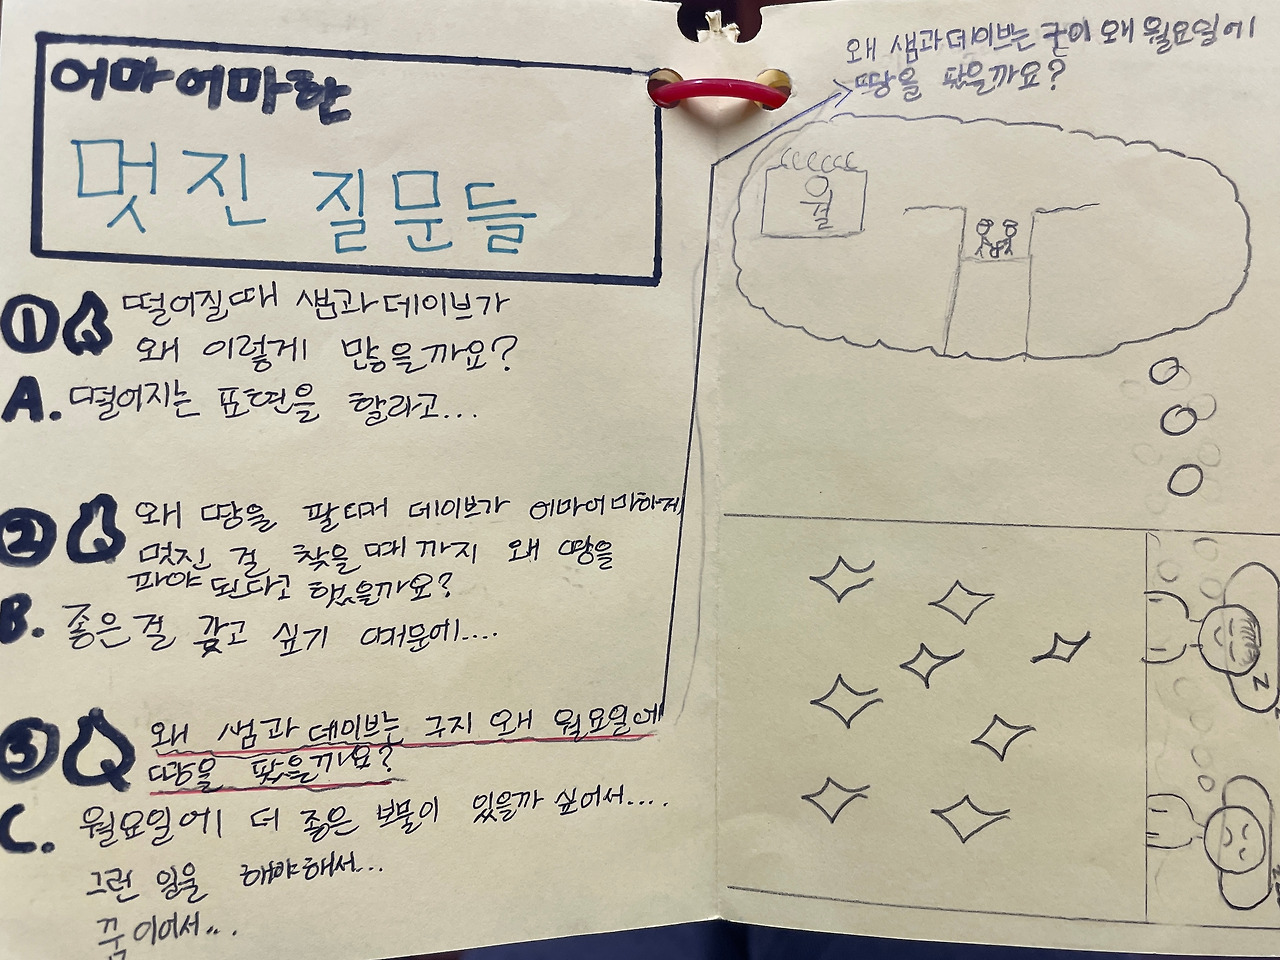 어마어마한
멋진 질문들
① Q 떨어질때 샘과데이브가
왜 이렇게 많을까요?
A. 떨어지는 표현을 할라고...
② Q 왜 땅을 팔때 데이브가 어마어마하게
멋진 걸 찾을 때까지 왜 땅을
파야 된다고 했을까요?
B. 좋은걸 갖고 싶기 때문에....
③ Q 왜 샘과 데이브는 구지 왜 월요일에
땅을 팠을까요?
C. 월요일에 더 좋은 보물이 있을까 싶어서....
그런 일을 해야해서...
꿈이어서...
왜 샘과데이브는 굳이 왜 월요일에
땅을 팠을까요?
월
z